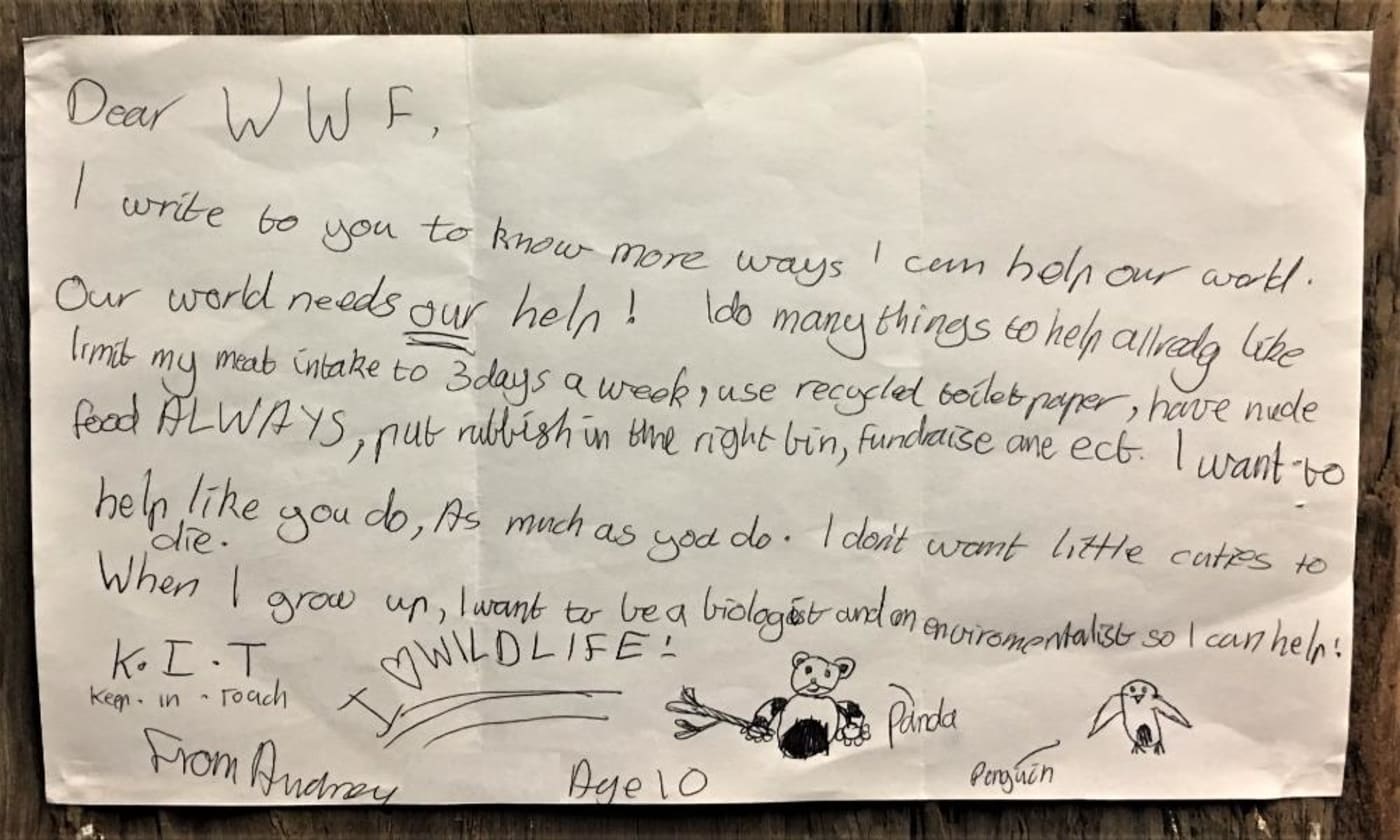 Dear WWF,
I write to you to know more ways I can help our world.
Our world needs our help! I do many things to help allredg like
limit my meat intake to 3 days a week, use recycled toilet paper, have nude
food ALWAYS, put rubbish in the right bin, fundraise ane ect. I want to
help like you do, As much as you do. I don't want little cuties to
die.
When I grow up, I want to be a biologist and an enviromentalist so I can help!
K.I.T
Keep. in - toach
I ♡ WILDLIFE!
Panda
Penguin
From Audrey
Age 10